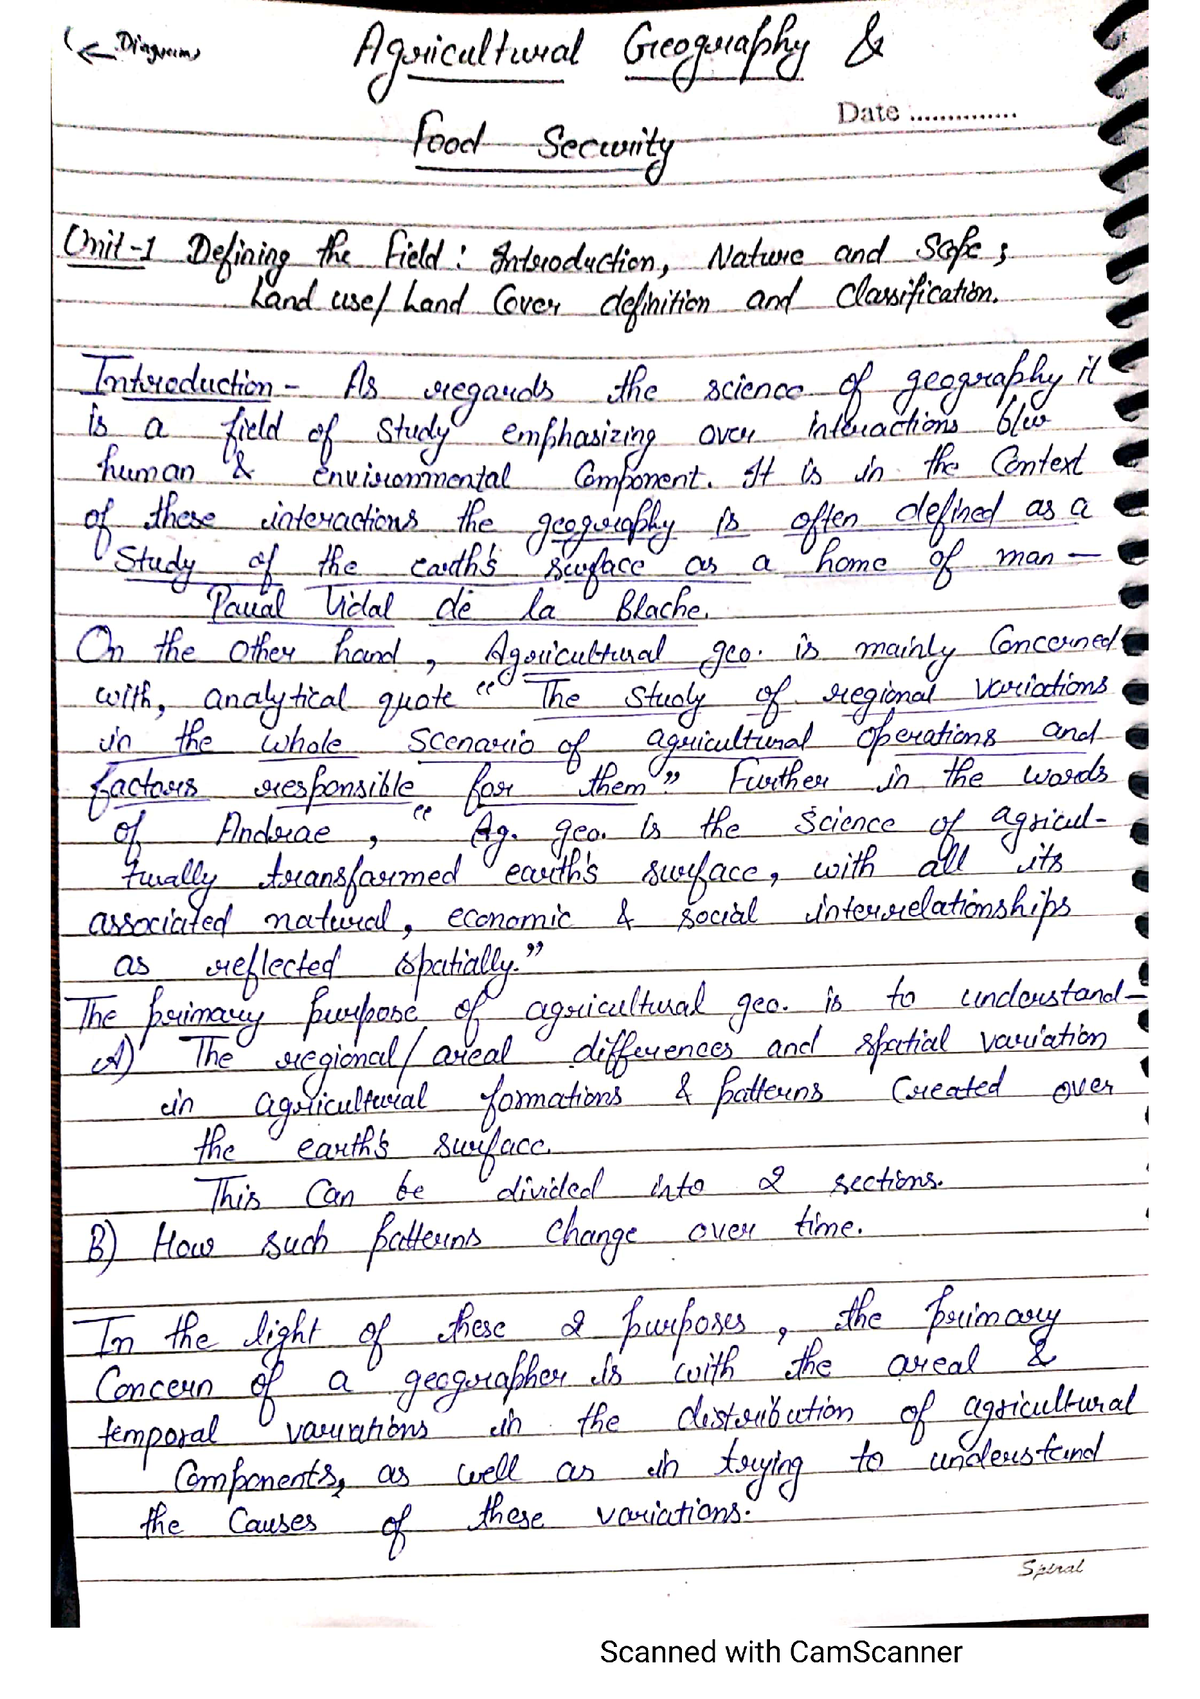 ← Diagrams
Agricultural Geography &
Date ..............
Food Security
Unit-1 Defining the Field: Introduction, Nature and Scope;
Land use/Land Cover definition and Classification.
Introduction - As regards the science of geography it
is a field of study emphasizing over interactions b/w
human & environmental Component. It is in the Context
of these interactions the geography is often defined as a
Study of the earth's surface as a home of man —
Paual Vidal de la Blache.
On the other hand, Agricultural geo. is mainly Concerned
with, analytical quote "The study of regional variations
in the whole scenario of agricultural operations and
factors responsible for them" Further in the words
of Andreae, "Ag. geo. is the Science of agricul-
turally transformed earth's surface, with all its
associated natural, economic & social interrelationships
as reflected spatially."
The primary purpose of agricultural geo. is to understand-
A) The regional/areal differences and spatial variation
in agricultural formations & patterns Created over
the earth's surface.
This Can be divided into 2 sections.
B) How such patterns change over time.
In the light of these 2 purposes, the primary
Concern of a geographer is with the areal &
temporal variations in the distribution of agricultural
Components, as well as in trying to understand
the Causes of these variations.
Spiral
Scanned with CamScanner